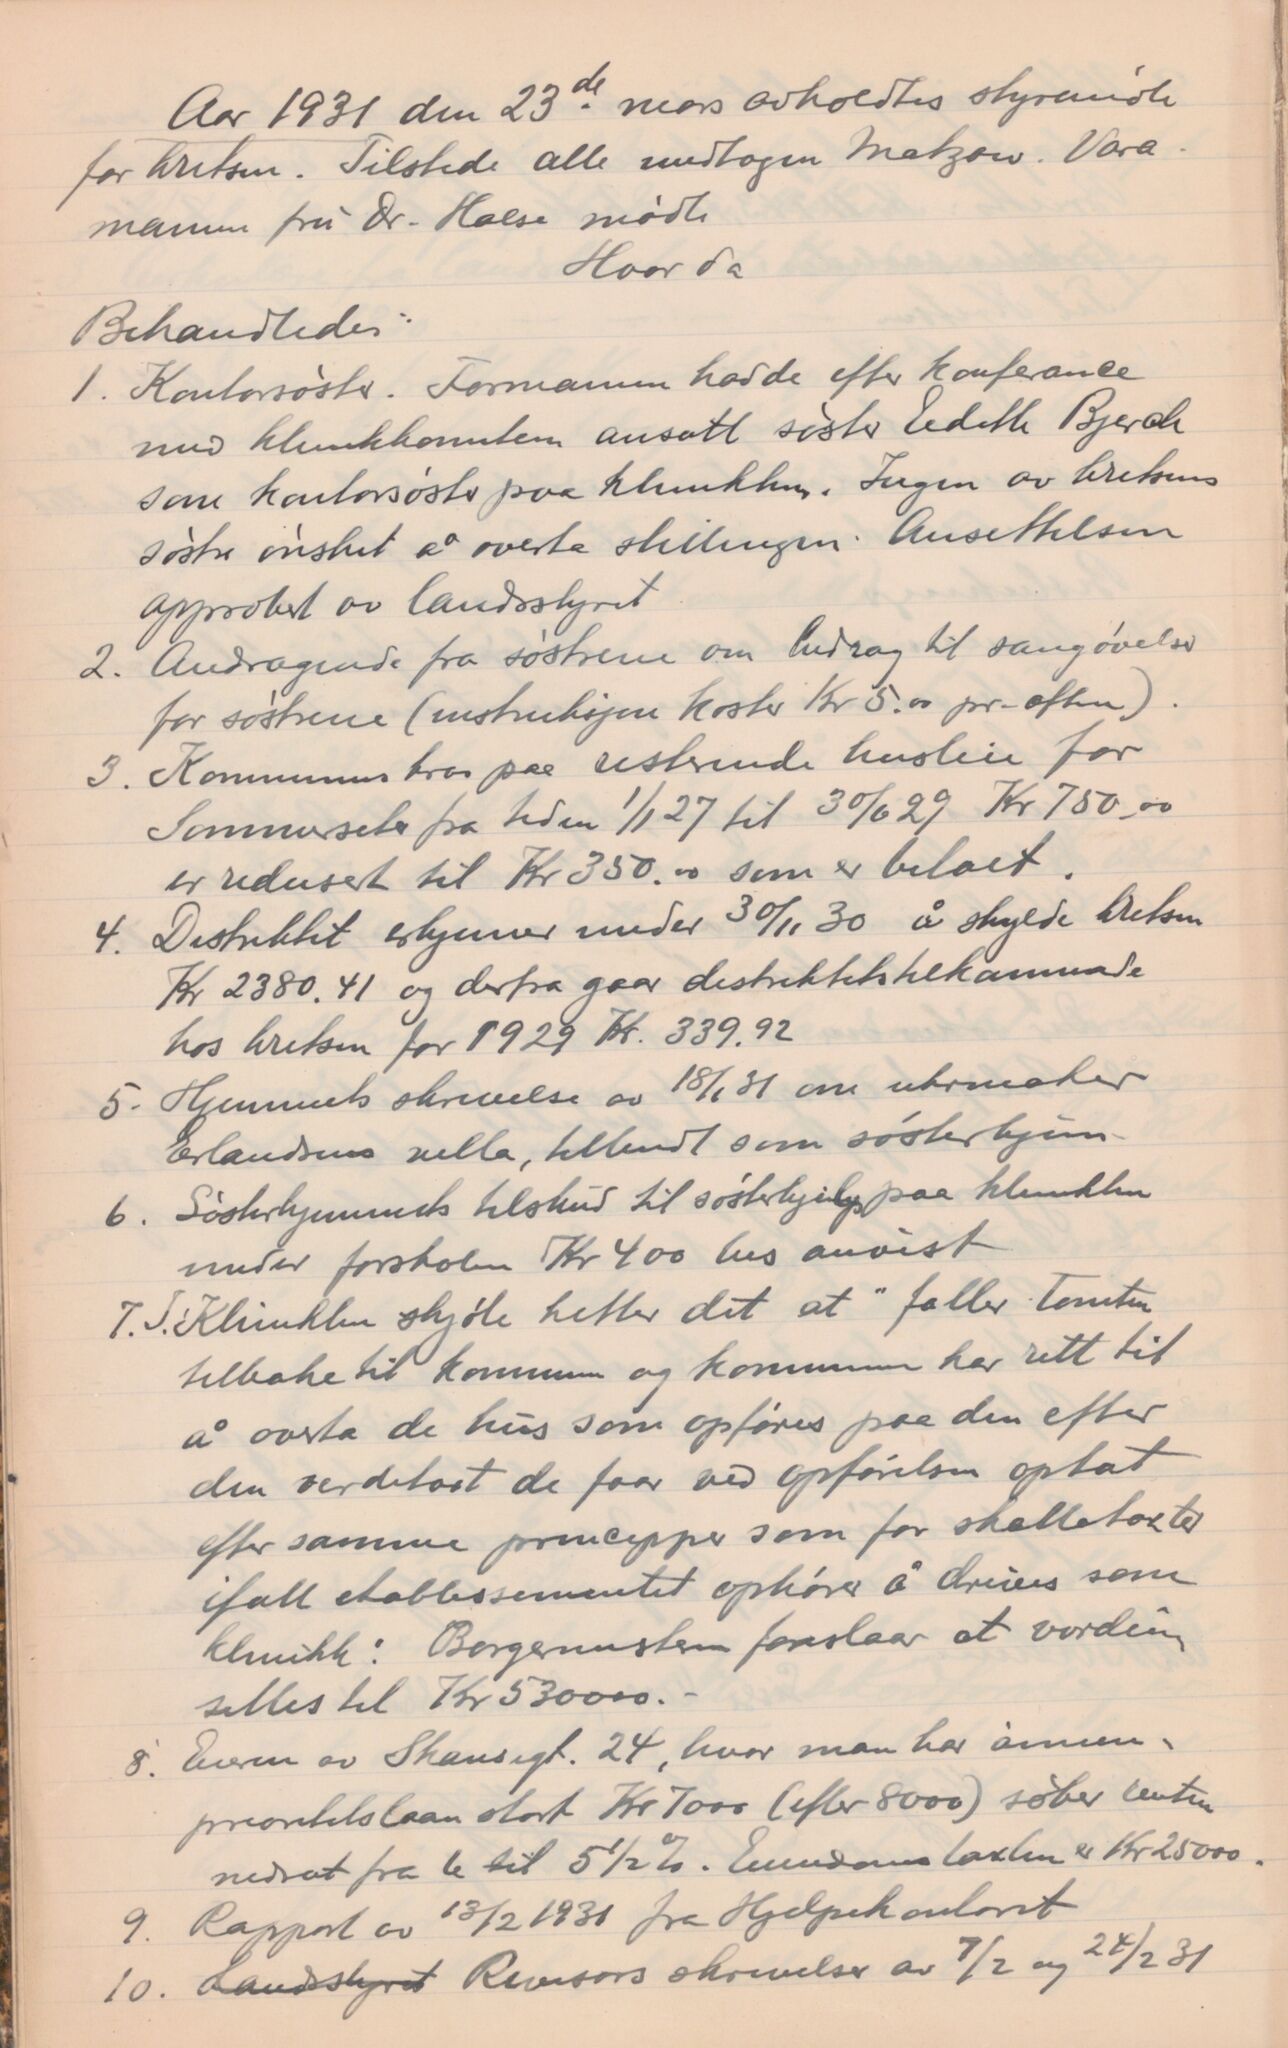 Aar 1931 den 23de mars avholdtes styremöte
for kretsen. Tilstede alle undtagen Matzow. Vara-
mannen fru Dr. Halse mødte
Hvor da
Behandledes:
1. Kontorsøster. Formannen hadde efter konferance
med klinikkomiteen ansatt søster Eedith Bjerch
som kontorsøster paa klinikken. Ingen av kretsens
søstre ønsket å overta stillingen. Ansettelsen
approbert av landsstyret
2. Andragende fra søstrene om bidrag til sangøvelser
for søstrene (instruksjon koster Kr 5.00 pr. aften).
3. Kommunens krav paa resterende husleie for
Sommersete fra tiden 1/1 27 til 30/6 29 Kr 750.00
er redusert til Kr 350.00 som er betalt.
4. Distriktet erkjenner under 30/11 30 å skylde kretsen
Kr 2380.41 og derfra gaar distriktets tilkommende
hos kretsen for 1929 Kr. 339.92
5. Hjemmets skrivelse av 18/1 31 om urmaker
Erlandsens villa, tilbudt som søsterhjem
6. Søsterhjemmets tilskud til søsterhjelp paa klinikken
under forskolen Kr 400 bes anvist
7. I Klinikken skjöte heter det at "faller tomten
tilbake til kommunen og kommunen har rett til
å overta de hus som opføres paa den efter
den verditaxt de faar ved opførelsen optat
efter samme principper som for skattetaxter
ifall etablissementet ophører å drives som
klinikk: Borgermesteren foreslaar at verdien
settes til Kr 530000.-
8. Eieren av Skansegt. 24, hvor man har annen-
prioritetslaan stort Kr 7000 (efter 8000) søker renten
nedsat fra 6 til 5 1/2 %. Eiendomstaxten er Kr 25000.
9. Rapport av 13/2 1931 fra Hjelpekontoret
10. Landsstyret Revisors skrivelser av 7/2 og 24/2 31